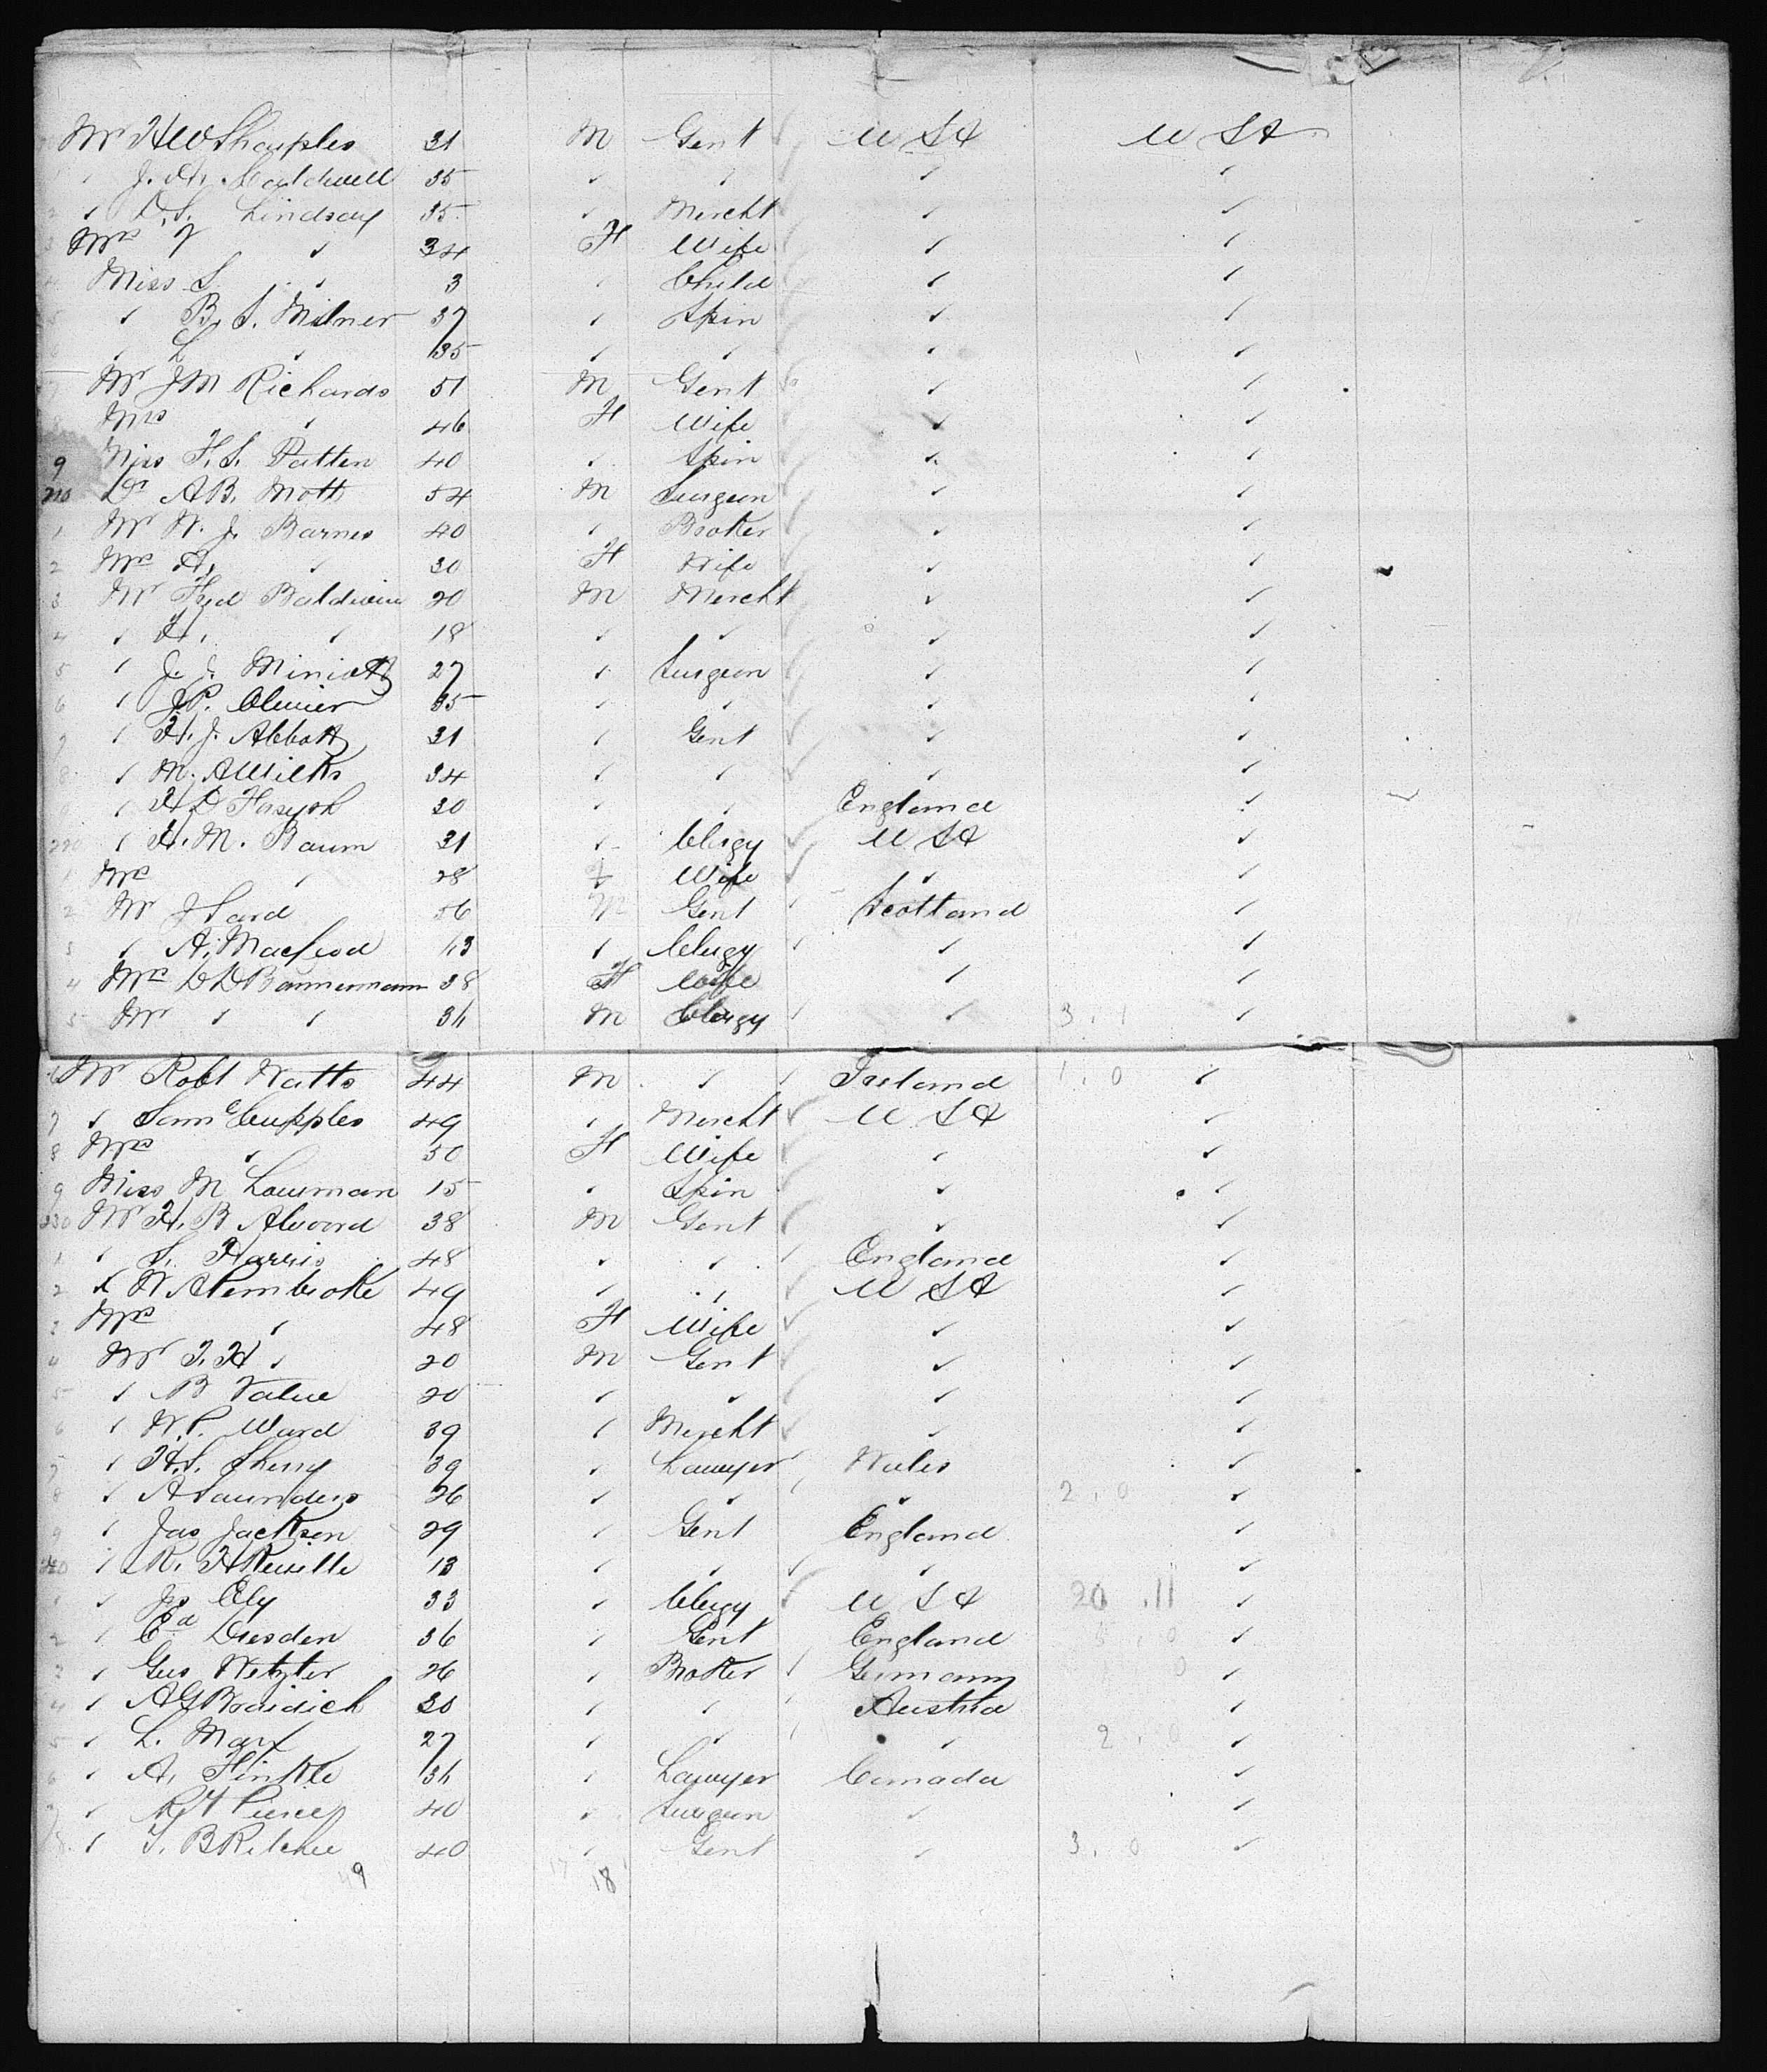 Mr HW Sharples 31 M Gent USA USA
" J. H. Caldwell 35 " " " "
2 " D. S. Lindsay 35 " Mercht " "
3 Mrs " 34 F Wife " "
4 Miss S. " 3 " Child " "
5 " B. S. Milner 37 " Spin " "
6 " L " 35 " " " "
7 Mr JM Richards 51 M Gent " "
8 Mrs " 46 F Wife " "
9 Miss F. S. Patten 40 " Spin " "
210 Dr AB. Mott 54 M Surgeon " "
1 Mr W. J. Barnes 40 " Broker " "
2 Mrs A, " 30 F Wife " "
3 Mr Fred Baldwin 20 M Mercht " "
4 " H. " 18 " " " "
5 " J. J. 27 " Surgeon " "
6 " J.P. Olivier 35 " " " "
7 " H. J. Abbott 31 " Gent " "
8 " M. A Wilks 34 " " " "
" HD 30 " " England "
220 " H. M. Baum 31 " Clergy USA "
1 Mrs " 28 F Wife " "
2 Mr J 56 M Gent Scotland "
3 " A. Macleod 43 " Clergy " "
4 Mrs DD Bannerman 38 F Wife " "
5 Mr " " 36 M Clergy " 3. 1 "
6 Mr Robt Watts 44 M " Ireland 1. 0 "
7 " Saml Cupples 49 " Mercht USA "
8 Mrs " 50 F Wife " "
9 Miss M Lowman 15 " Spin " "
230 Mr H. B Alvord 38 M Gent " "
1 " S. Harris 48 " " England "
2 " W A Pembroke 49 " " USA "
3 Mrs " 48 F Wife " "
4 Mr T. H " 20 M Gent " "
5 " B Value 20 " " " "
6 " W. P. Ward 39 " Mercht " "
7 " H. S. Sherry 39 " Lawyer Wales "
8 " A Saunders 26 " " " 2. 0 "
9 " Jas Jackson 29 " Gent England "
240 " R. H 13 " " " "
1 " Js Ely 33 " Clergy USA 20 . 11 "
2 " Ed Dresden 36 " Gent England 5. 0 "
3 " Gus Wetzler 26 " Broker Germany 0 "
4 " AG 30 " " Austria "
5 " L. Marx 27 " " " 2. 0 "
6 " A. Hinkle 36 " Lawyer Canada "
7 " Pierce 40 " Surgeon " "
8 " T. B Ritchie 40 " Gent " 3. 0 "
49 17 18